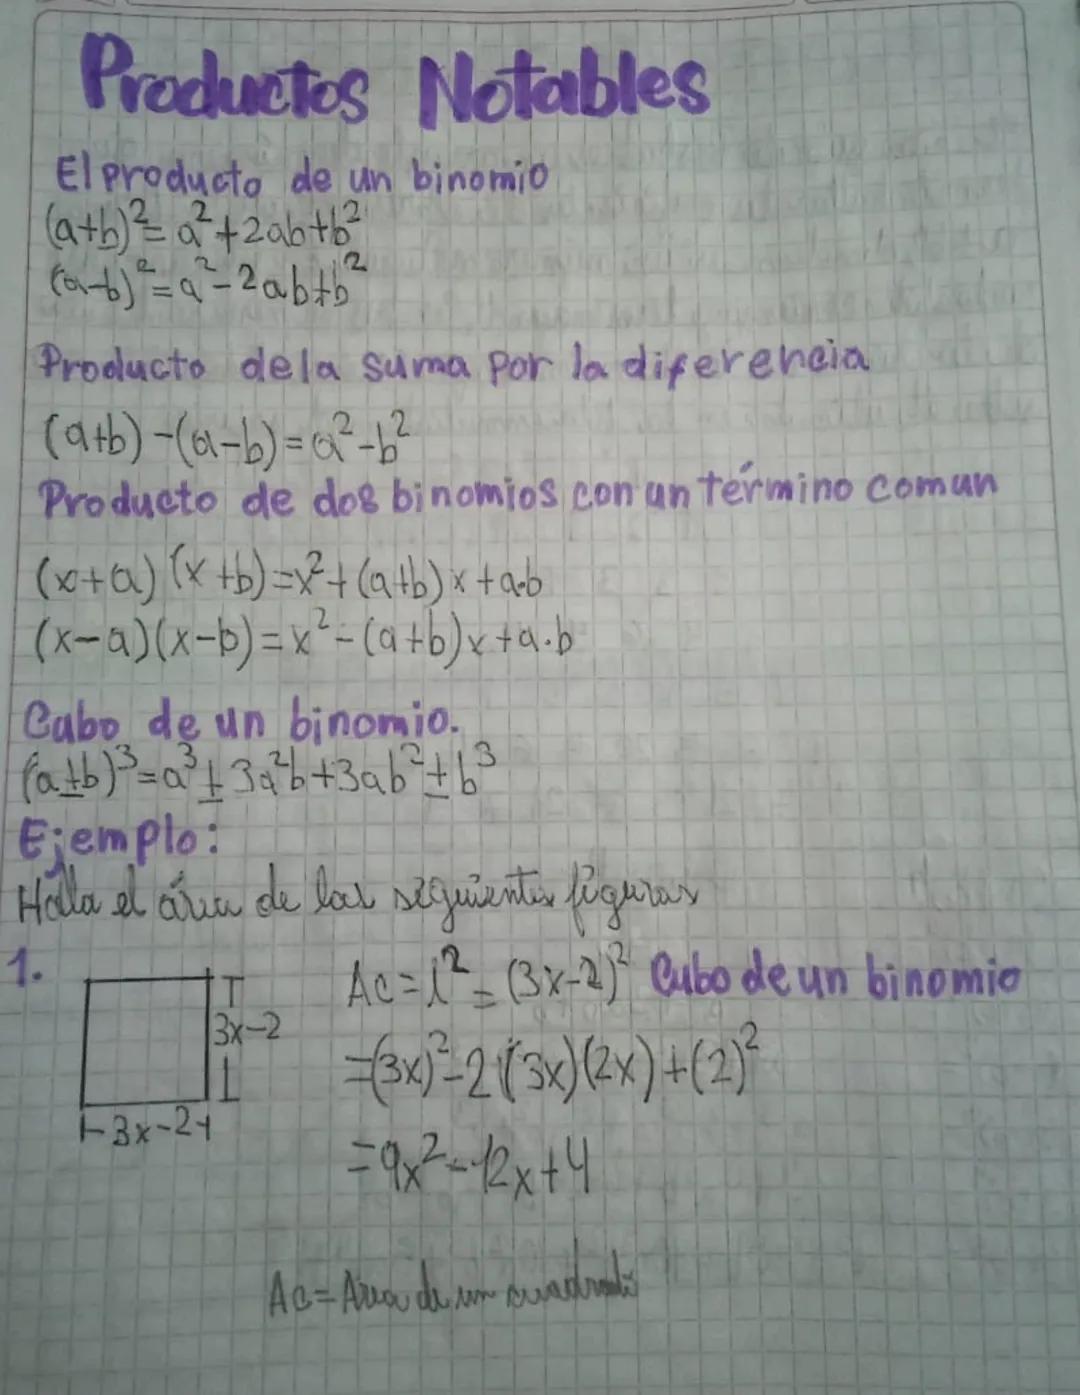 Productos Notables
El producto de un binomio
(a+b)²=a²+2ab+b²
(a-b)²=a²-2ab+b²
Producto dela suma por la diferencia
(a+b)-(a-b)=a²-b²
Producto de dos binomios con un término comun
(x+a)(x+b)=x²+(a+b)x+a·b
(x-a)(x-b)=x²-(a+b)x+a·b
Cubo de un binomio.
(a±b)³=a³±3a²b+3ab²±b³
Ejemplo:
Halla el área de las seguientes figuras
1.
Ac=l²=(3x-2)² Cubo de un binomio
3x-2
=(3x)²-2(3x)(2x)+(2)²
3x-2
=9x²-12x+4
Ac=Area de un cuadrado